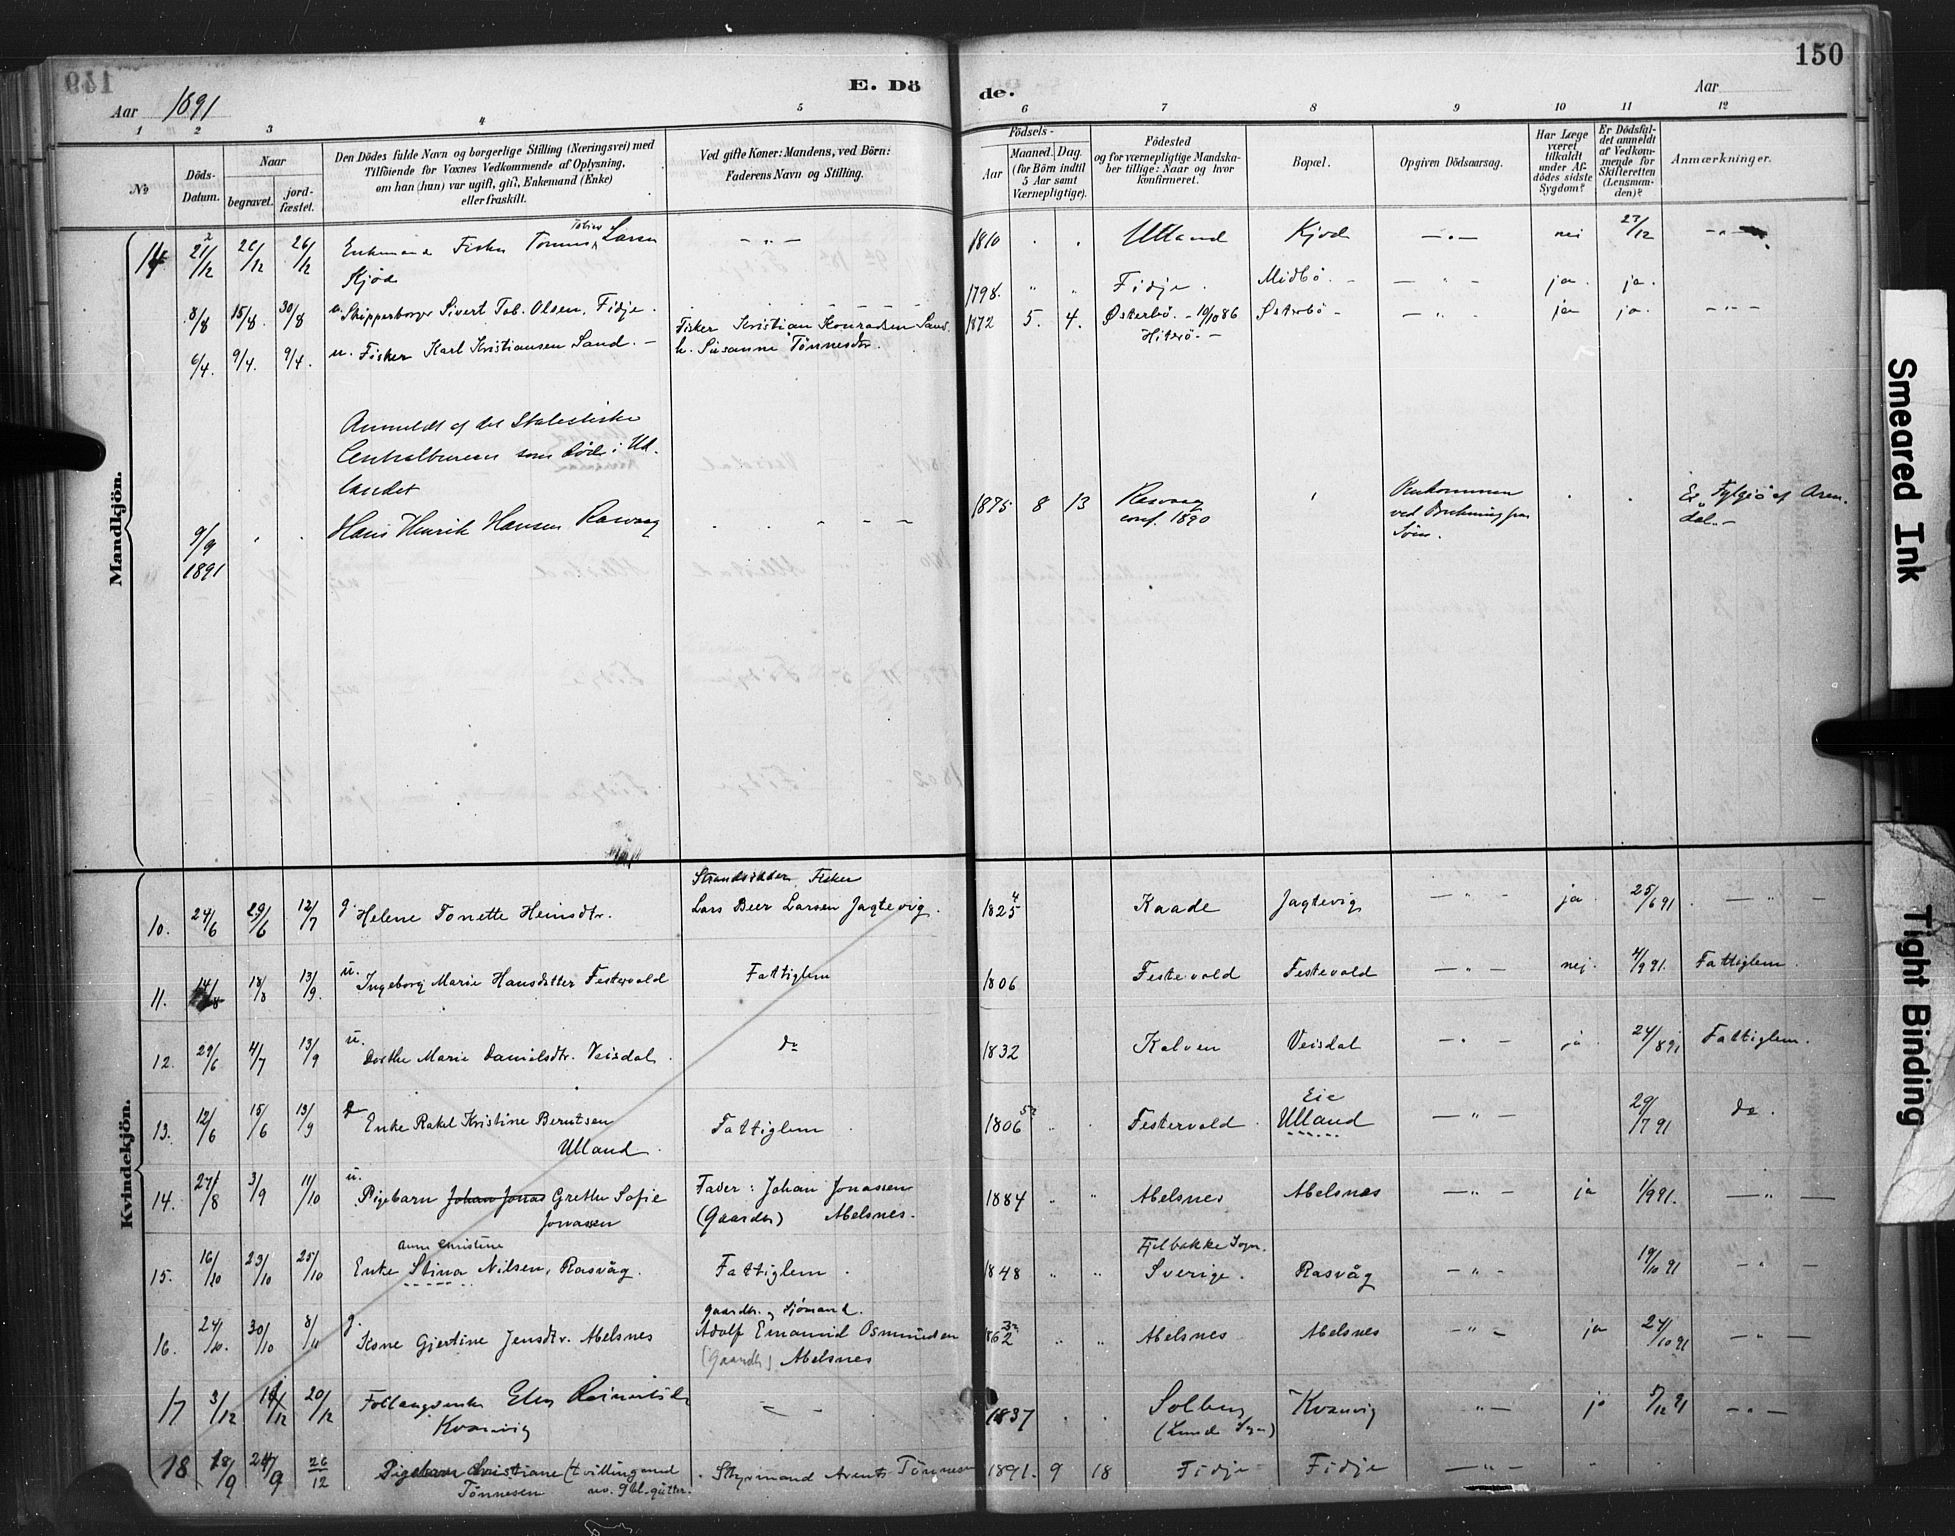 149
150
E. Dö
de.
Aar 1891
Aar
1 2 3 4 5 6 7 8 9 10 11 12
No
Döds-
Datum.
Naar
begravet.
jord-
fæstet.
Den Dödes fulde Navn og borgerlige Stilling (Næringsvei) med
Tilföiende for Voxnes Vedkommende af Oplysning,
om han (hun) var ugift, gift, Enkemand (Enke)
eller fraskilt.
Ved gifte Koner: Mandens, ved Börn:
Faderens Navn og Stilling.
Födsels-
Aar
Maaned. Dag.
(for Börn indtil
5 Aar samt
Værnepligtige).
Födested
og for værnepligtige Mandska-
ber tillige: Naar og hvor
konfirmeret.
Bopæl.
Opgiven Dödsaarsag.
Har Læge
været
tilkaldt
under Af-
dödes sidste
Sygdom?
Er Dödsfal-
det anmeldt
af Vedkom-
mende for
Skifteretten
(Lensman-
den)?
Anmærkninger.
Mandkjön.
14 21/12 26/12 26/12 Enkemand Fisker Tönnes Tobias Larsen - " - 1810 Ulland Kjöd - " - nei 23/12
Kjöd
1798. " " Fidje. Midbö. - - " - ja. ja.
8/8 15/8. 30/8 u. Skipperborger Sivert Tob. Olsen, Fidje.
6/4. 9/4. 9/4. u. Fisker Karl Kristiansen Sand. - Fisker Kristian Konradsen Sand. 1872 5. 4. Østerbö. - 10/10 86 Østerbö - - " - ja ja. - " -
h. Susanne Tönnesdtr. Hiterö. -
Anmeldt af det Statistiske
Centralbureau som död i Ud-
landet
9/9 1891 Hans Henrik Hansen Rasvaag 1875 8 13 Rasvaag
conf. 1890
Omkommen
ved
Aren-
dal. -
Kvindekjön.
10. 24/6 29/6 12/7 g. Helene Tonette Heinsdtr. Strandsidder, Fisker
Lars Beer Larsen Jagtevig. 1825 Kaade Jagtevig - " - ja 25/6 91. - " -
11. 14/8 18/8 13/9. u. Ingeborg Marie Hansdatter Festervold Fattiglem 1806 Festevold Festevold - " - nej. 4/9 91. Fattiglem.
12. 29/6 4/7 13/9 u. Dorthe Marie Danielsdtr. Veisdal. do 1832 Kalven Veisdal - " - ja 24/8 91 Fattiglem.
13. 12/6 15/6 13/9 Enke Rakel Kristine Berntsen
Ulland. Fattiglem 1806 Festervold Eie
Ulland - " - 29/7 91 do.
14. 27/8 3/9 11/10 u. Pigebarn Johan Jonas Grethe Sofie
Jonassen Fader: Johan Jonassen
(Gaardbr) Abelsnes. 1884 " " Abelsnes Abelsnes - " - ja 1/9 91. - " -
15. 16/10 23/10 25/10 Anne Christine
Enke Stina Nilsen, Rasvåg. Fattiglem. 1848 " " Fjelbakke Sogn.
Sverige. Rasvåg - " - 19/10 91 - " -
16. 24/10. 30/10 8/11 g. Gjertine Jensdtr. Abelsnes Gaardbr. og Sjömand.
Adolf Emanuel Osmundsen
(Gaardbr) Abelsnes 1862 " " Abelsnes Abelsnes - " - ja 27/10 91 - " -
17 3/12 12/12 20/12 Föllaugsenke
Kvanvig - " - 1837 Solberg
(Lunde Sogn) Kvanvig " - ja 5/12 91 - " -
18 18/9 24/9 26/12 Pigebarn Christiane (tvilling med
Tönnesen no. 9 bl. gutter. Styrmand Arents Tönnesen 1891. 9 18 Fidje Fidje - " -
Smeared Ink
Tight Binding